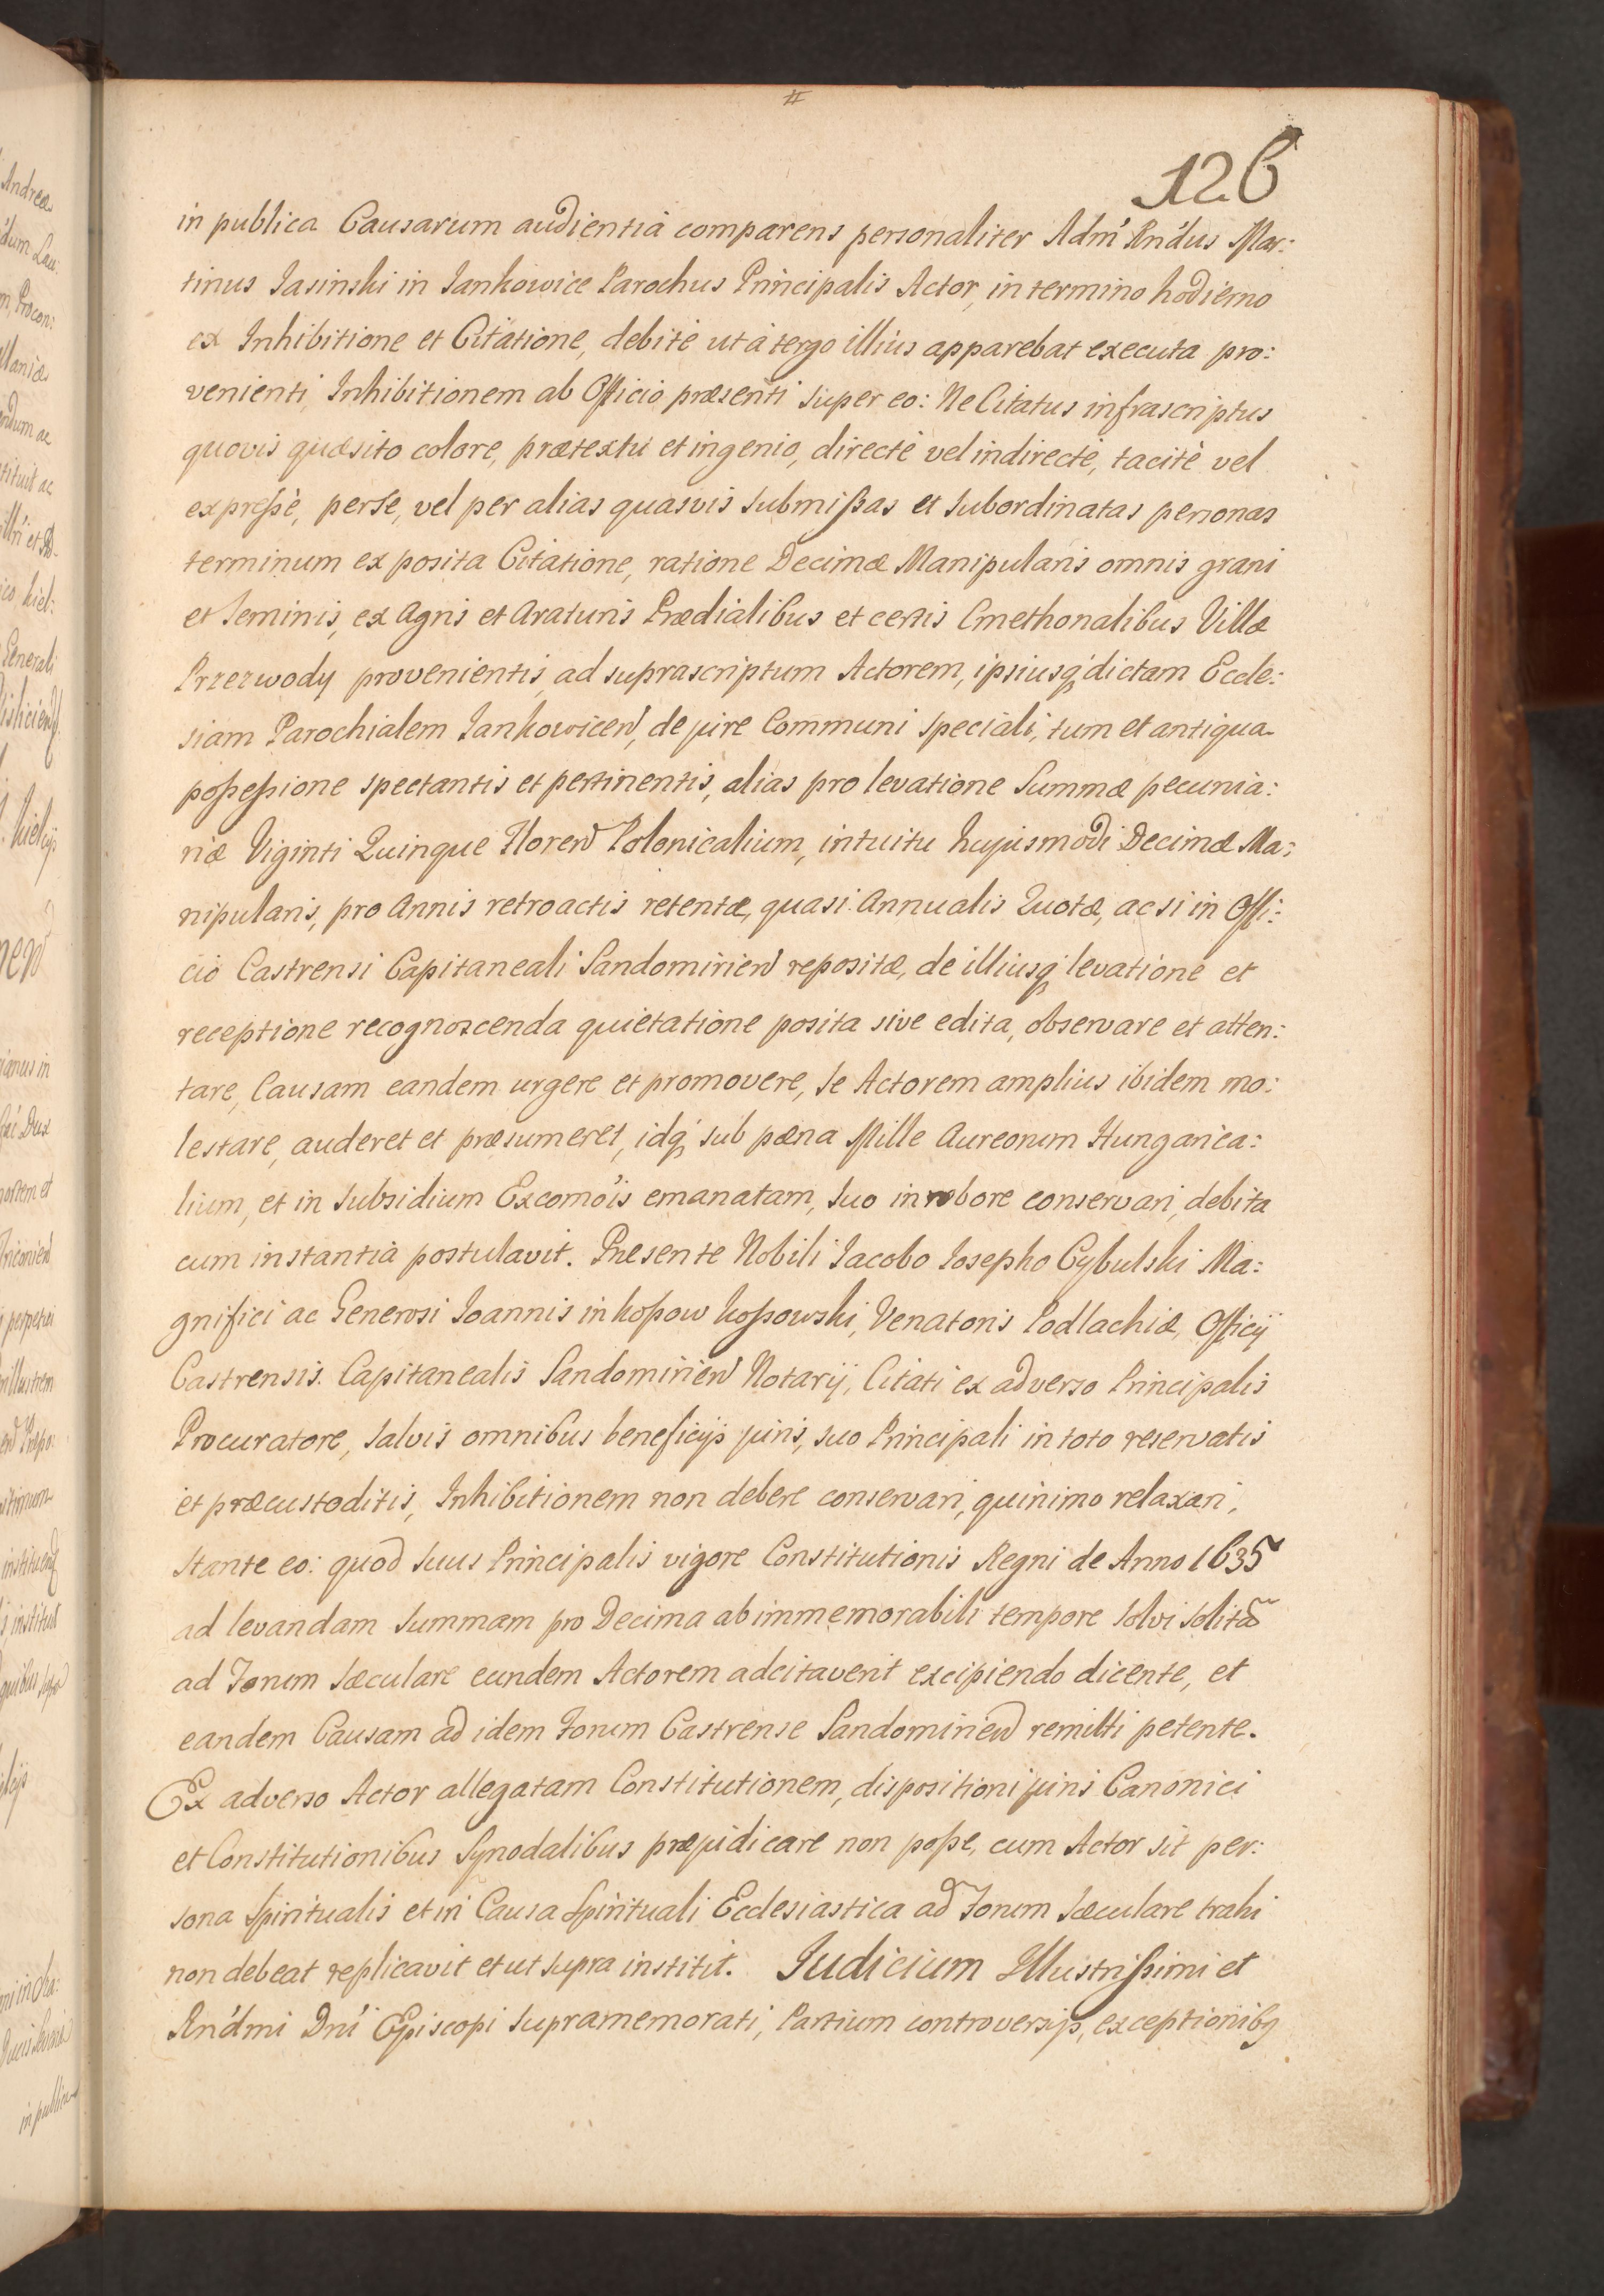 126
in publica Causarum audientiâ comparens personaliter Adm̃ Rńdus Mar:
tinus Jasinski in Jankowice Parochus Principalis Actor, in termino hodierno
ex Inhibitione et Citatione, debitè ut à tergo illius apparebat executa pro:
venienti, Inhibitionem ab Officio præsenti super eo: Ne Citatus infrascriptus
quovis quæsito colore, prætextu et ingenio, directè vel indirectè, tacitè vel
expreßè, per se, vel per alias quasvis submißas et subordinatas personas
terminum ex posita Citatione, ratione Decimæ Manipularis omnis grani
et seminis, ex Agris et Araturis Prædialibus et certis Cmethonalibus Villæ
Przezwody provenientis, ad suprascriptum Actorem, ipsiusq́ dictam Eccle:
siam Parochialem Jankowicen̄, de jure Communi speciali, tum et antiqua
poßeßione spectantis et pertinentis, alias pro levatione Summæ pecunia:
riæ Viginti Quinque Floren̄ Polonicalium, intuitu hujusmodi Decimæ Ma:
nipularis, pro Annis retroactis retentæ, quasi Annualis Quotæ, ac si in Offi:
cio Castrensi Capitaneali Sandomirien̄ repositæ, de illiusq́ levatione et
receptione recognoscenda quietatione posita sive edita, observare et atten:
tare, Causam eandem urgere et promovere, se Actorem amplius ibidem mo:
lestare, auderet et præsumeret, idq́ sub pæna Mille Aureorum Hungarica:
lium, et in subsidium Excomõis emanatam, suo in robore conservari, debita
cum instantia postulavit. Præsente Nobili Jacobo Josepho Cybulski Ma:
gnifici ac Generosi Joannis in koßow koßowski, Venatoris Podlachiæ, Officij
Castrensis Capitanealis Sandomirien̄ Notarij, Citati ex adverso Principalis
Procuratore, salvis omnibus beneficijs juris, suo Principali in toto reservatis
et præcustoditis, Inhibitionem non debere conservari, quinimo relaxari,
stante eo: quod suus Principalis vigore Constitutionis Regni de Anno 1635
ad levandam summam pro Decima ab immemorabili tempore solvi solitã
ad Forum sæculare eundem Actorem adcitaverit excipiendo dicente, et
eandem Causam ad idem Forum Castrense Sandomirien̄ remitti petente.
Ex adverso Actor allegatam Constitutionem, dispositioni juris Canonici
et Constitutionibus Synodalibus præjudicare non poße, cum Actor sit per:
sona Spiritualis et in Causa Spirituali Ecclesiastica ad Forum sæculare trahi
non debeat replicavit et ut supra institit. Judicium Illustrißimi et
Rńdmi Dńi Episcopi supramemorati, Partium controversijs, exceptionibq